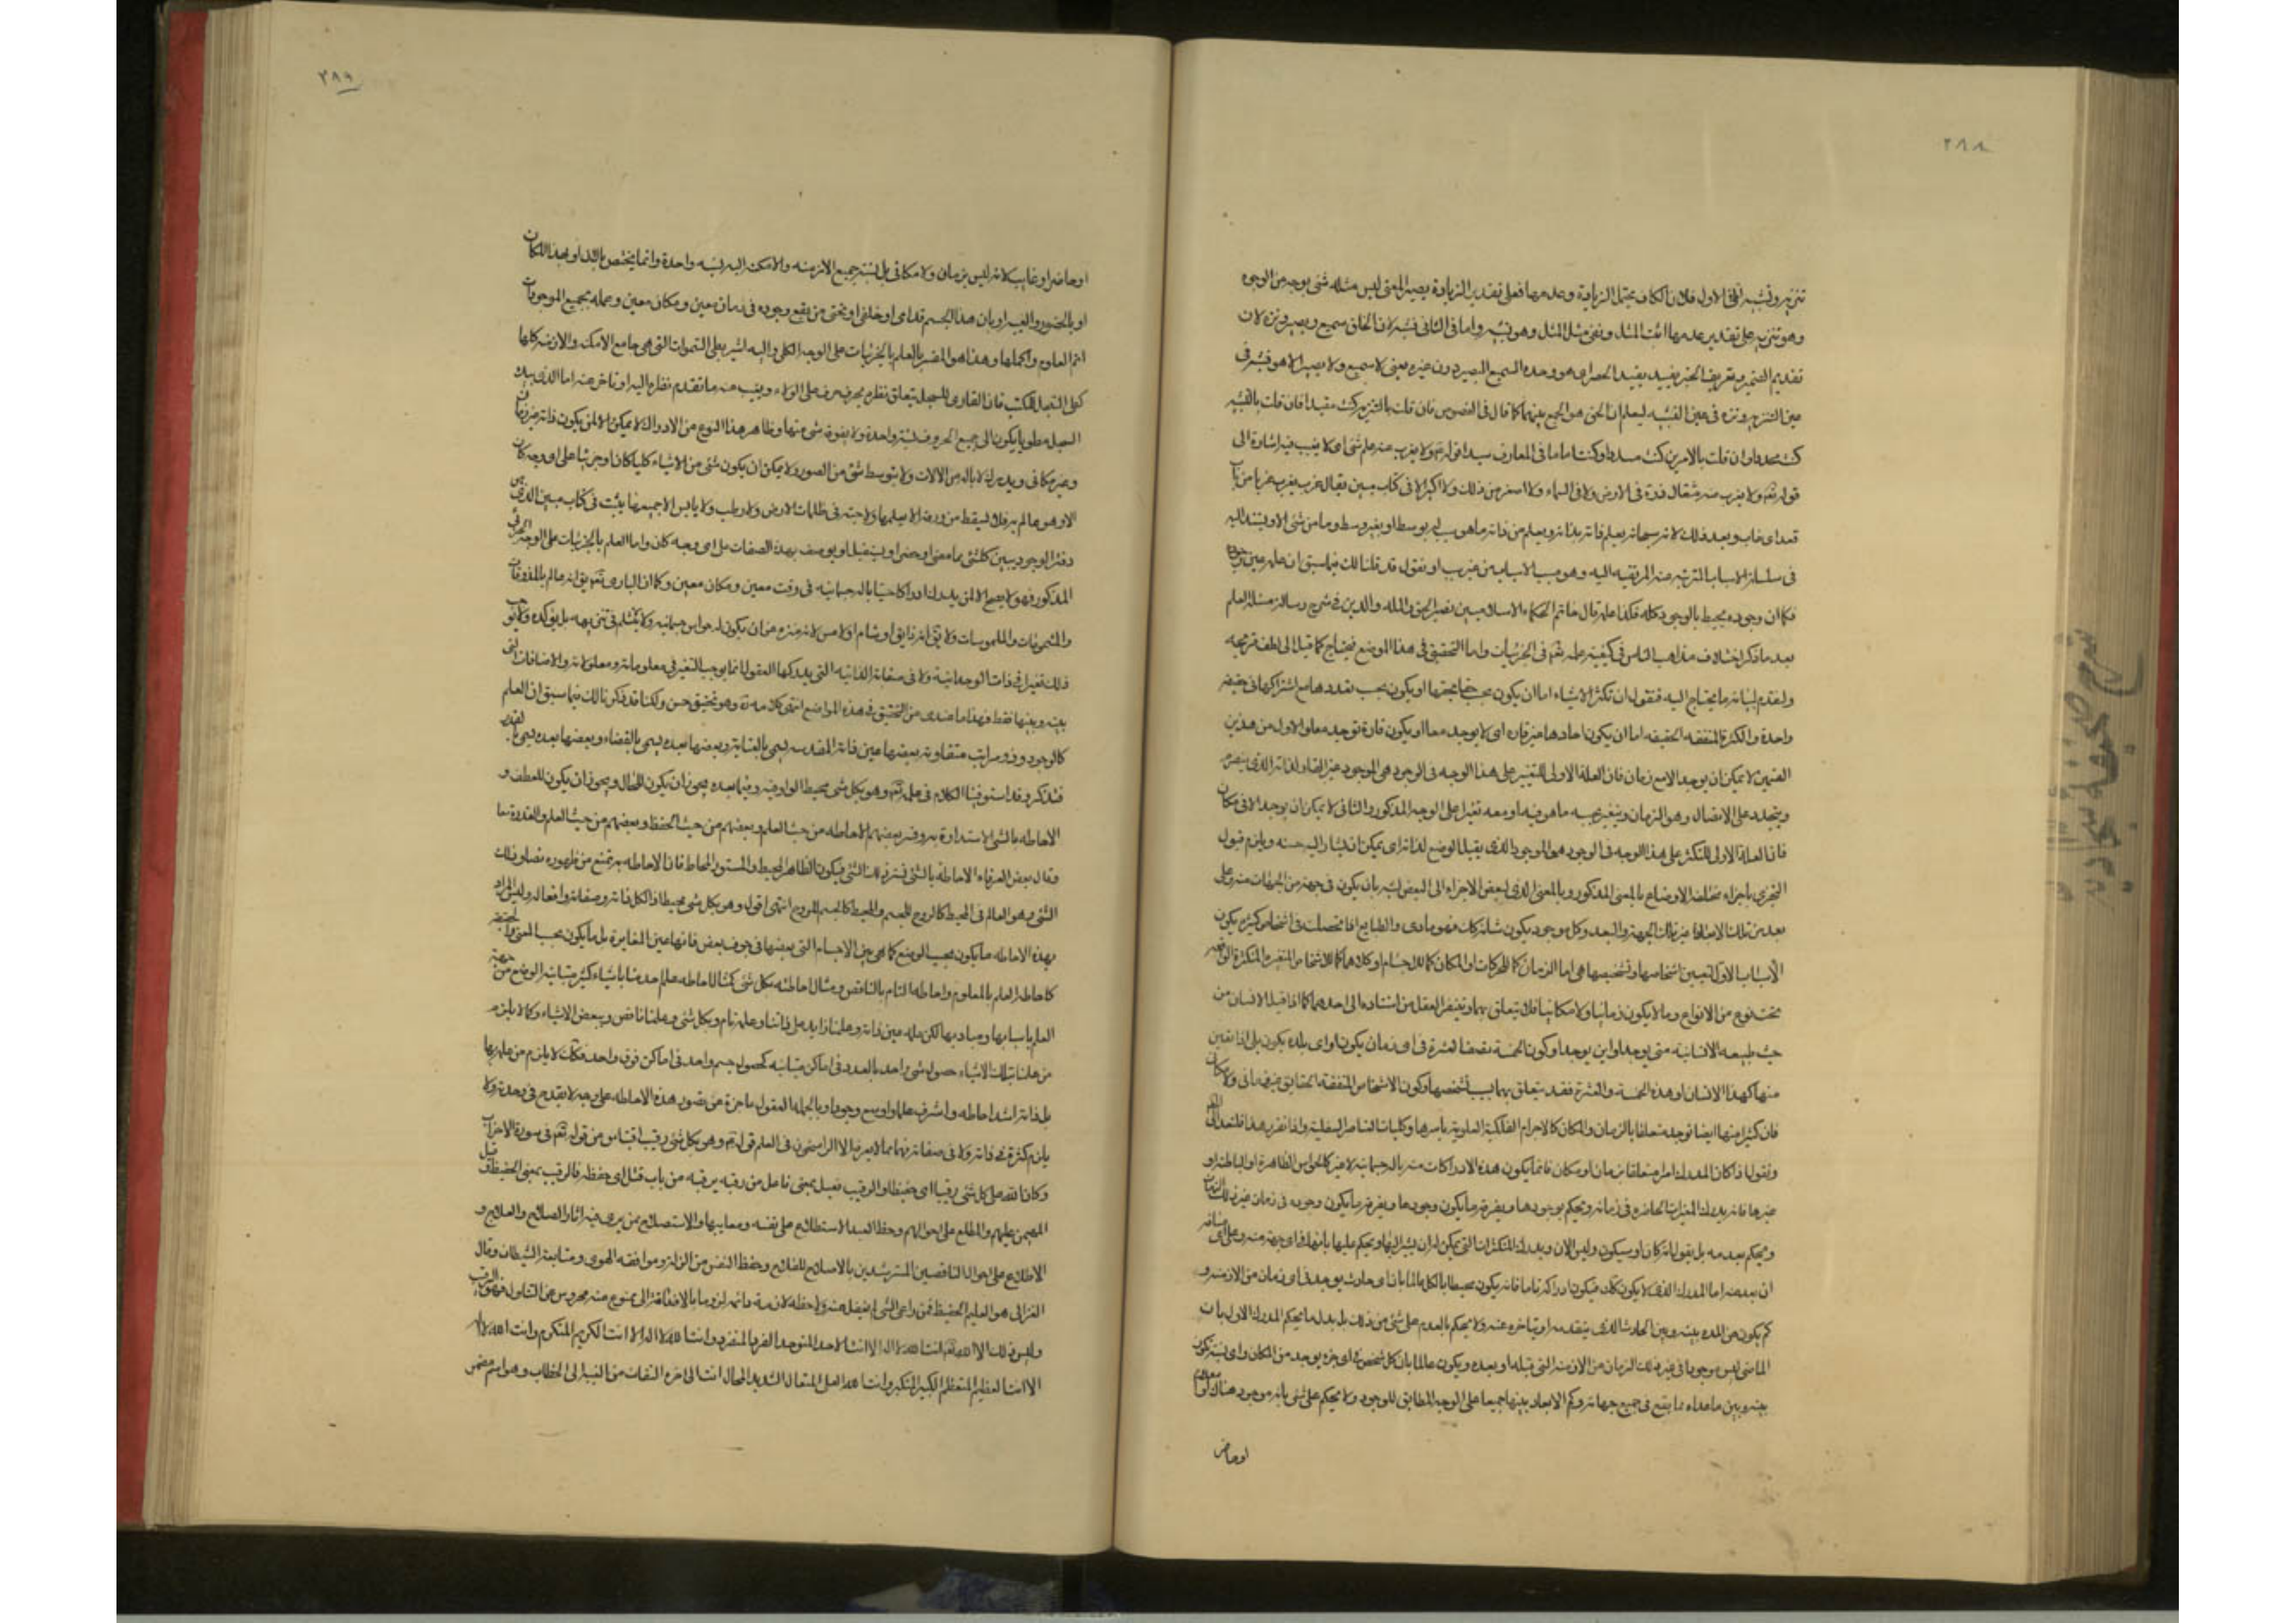 ٢٨٨
تنزيه وتشبيه اما فى الاول فلان الكاف يحتمل الزيادة وعدمها فعلى تقدير الزيادة يصير المعنى ليس مثله شئ بوجه من الوجوه
وهو تنزيه وعلى تقدير عدمها اثبت المثل ونفى مثل المثل وهو تشبيه واما فى الثانى فشبه لان الخلق سميع وبصير ونزه لان
تقديم الضمير وتعريف الخبر يفيد الحصر اى هو وحده السميع البصير دون غيره بمعنى لا سميع ولا بصير الا هو فشبه فى
عين التنزيه ونزه فى عين التشبيه ليعلم ان الحق هو الجمع بينهما كما قال فى الفصوص فان قلت بالتنزيه كنت مقيدا فان قلت بالتشبيه
كنت محددا وان قلت بالامرين كنت مسددا وكنت اماما فى المعارف سيدا قوله ولا يعزب عنه علم شئ اى لا يغيب فيه اشارة الى
قوله تعم ولا يعزب عنه مثقال ذرة فى الارض ولا فى السماء ولا اصغر من ذلك ولا اكبر الا فى كتاب مبين يقال عزب يعزب عزبا من باب
قعد اى غاب وبعد وذلك لانه سبحانه يعلم ذاته بذاته ويعلم من ذاته ما هو سبب له بوسط او بغير وسط وما من شئ الا ويستند اليه
فى سلسلة الاسباب المترتبه عنه المرتقيه اليه وهو مسبب الاسباب من غير سبب او نقول قد قلنا لك فيما سبق ان علمه عين وجوده
فكما ان وجوده محيط بالوجود كله فكذا علمه قال خاتم الحكماء الاسلاميين نصير الحق والمله والدين فى شرح رسالة مسئلة العلم
بعد ما ذكر اختلاف مذاهب الناس فى كيفية علمه تعم فى الجزئيات واما التحقيق فى هذا الموضع فيحتاج كما قيل الى لطف قريحه
ولنقدم لبيانه ما يحتاج اليه فنقول ان تكثر الاشياء اما ان يكون بحسب حقايقها او يكون بحسب تعددها مع اشتراكها فى حقيقه
واحدة والكثرة المتفقه الحقيقه اما ان يكون احادها غير قاره اى لا يوجد معا او يكون قارة توجد معا والاول من هذين
القسمين لا يمكن ان يوجد الا مع زمان فان العلة الاولى للتغير على هذا الوجه فى الوجود هى الموجود غير القار لذاته الذى يتصرم
ويتجدد على الاتصال وهو الزمان ويتغير بحسبه ما هو فيه او معه تغيرا على الوجه المذكور والثانى لا يمكن ان يوجد الا فى مكان
فان العلة الاولى للتكثر على هذا الوجه فى الوجود هو الموجود الذى يقبل الوضع لذاته اى يمكن ان يشار اليه حسا ويلزم قبول
التجزى باجزاء مختلفة الاوضاع بالمعنى المذكور وبالمعنى الذى لبعض الاجزاء الى البعض نسبة بان يكون فى جهة من الجهات منه وعلى
بعد من تلك الابعاد غير تلك الجهة والبعد وكل موجود يكون شانه كك فهو مادى والطبايع اذا تحصلت فى اشخاص كثيرة يكون
الاسباب الاول لتعين اشخاصها وتشخصها هى اما الزمان كما للحركات او المكان كما للاجسام او كلاهما كما للاشخاص المتغيره المتكثرة الواقعه
تحت نوع من الانواع وما لا يكون زمانيا ولا مكانيا فلا يتعلق بهما ويتنفر العقل من استناده الى احدهما كما اذا قيل الانسان من
حيث طبيعه الانسانيه متى يوجد او اين يوجد او كون الخمسة نصف العشرة فى اى زمان يكون او اى بلده يكون بل اذا تعين
منها كهذا الانسان او هذه الخمسة والعشرة فقد يتعلق بهما بسبب تشخصها وكون الاشخاص المتفقه الحقايق غير زمانى ولا مكانى
فان كثيرا منها ايضا توجد متعلقا بالزمان والمكان كالاجرام الفلكية العلويه باسرها وكليات العناصر السفليه واذا تقرر هذا فلنعد الى
ونقول اذا كان المدرك امرا متعلقا بزمان او مكان فانما يكون هذه الادراكات منه بالة جسمانيه لا غير كالحواس الظاهرة او الباطنه او
غيرها فانه يدرك المتغيرات الحاضرة فى زمانه ويحكم بوجودها ويفوته ما يكون وجودها ويفوته ما يكون وجوده فى زمان غير ذلك الزمان
ويحكم بعدمه بل يقول انه كان او سيكون وليس الان ويدرك المتكثرات التى يمكن له ان يشير اليها ويحكم عليها بانها فى اى جهة منه وعلى اى مسافه
ان بعد عنه اما المدرك الذى لا يكون كك فيكون ادراكه تاما فانه يكون محيطا بالكل عالما بان اى حادث يوجد فى اى زمان من الازمنه و
كم يكون من المده بينه وبين الحادث الذى يتقدمه او يتاخره عنه ولا يحكم بالعدم على شئ من ذلك بل بدل ما يحكم المدرك الاول بان
الماضى ليس موجودا فى غير ذلك الزمان من الازمنه التى قبله او بعده ويكون عالما بان كل شخص فى اى جزء يوجد من المكان واى نسبة يكون
بينه وبين ماعداه مما يقع فى جميع جهاته وكم الابعاد بينها جميعا على الوجه المطابق للوجود ولا يحكم على شئ بانه موجود هناك او معدوم
او حاض
٢٨٩
او حاضر او غايب لانه ليس بزمان ولا مكانى بل نسبة جميع الازمنه والامكنه اليه نسبه واحدة وانما يختص بالان او بهذا المكان
او بالحضور والغيبه او بان هذا الجسم قدامى او خلفى او تحتى من يقع وجوده فى زمان معين ومكان معين وعلمه بجميع الموجودات
اتم العلوم واكملها وهذا هو المفسر بالعلم بالجزئيات على الوجه الكلى واليه اشير بطى السموات التى هى جامع الامكنه والازمنه كلها
كطى السجل للكتب فان القارى للسجل يتعلق نظره بحرف حرف على الولاء ويغيب عنه ما تقدم نظره اليه او تاخر عنه اما الذى بيده
السجل مطويا يكون الى جميع الحروف نسبة واحدة ولا يفوته شئ منها وظاهر هذا النوع من الادراك لا يمكن الا لمن يكون ذاته غير زمانى
وغير مكانى ويدرك لا بالة من الالات ولا بتوسط شئ من الصور ولا يمكن ان يكون شئ من الاشياء كليا كان او جزئيا على اى وجه كان
الا وهو عالم به فلا يسقط من ورقة الا يعلمها ولا حبة فى ظلمات الارض ولا رطب ولا يابس الا جميعها يثبت فى كتاب مبين الذى هو
دفتر الوجود يبين كل شئ مما مضى او حضر او يستقبل او يوصف بهذه الصفات على اى وجه كان واما العلم بالجزئيات على الوجه الجزئى
المذكور فهو لا يصح الا لمن يدرك ادراكا حسيا بالة جسمانيه فى وقت معين ومكان معين وكما ان البارى تعم يق انه عالم بالمذوقات
والمشمومات والملموسات ولا يق انه ذايق او شام او لامس لانه منزه من ان يكون له حواس جسمانيه ولا يثلم ذلك فى تنزيهه بل يؤكده ولا يوجب
ذلك تغيرا فى ذاته الوحدانية ولا فى صفاته الذاتيه التى يدركها العقول انما يوجب التغير فى معلوماته ومعلولاته والاضافات التى
بينه وبينها فقط فهذا ما عندى من التحقيق فى هذه المواضع انتهى كلامه وهو تحقيق حسن ولكنا قد ذكرنا لك فيما سبق ان العلم
كالوجود وذو مراتب متفاوته بعضها عين ذاته المقدسه يسمى بالعنايه وبعضها بعده يسمى بالقضاء وبعضها بعده يسمى بالقدر
فتذكر وقد استوفينا الكلام فى علمه تعم وهو بكل شئ محيط الواو فيه وفيما بعده يجوز ان يكون للحال ويجوز ان يكون للعطف و
الاحاطه بالشئ الاستدارة به وفسر بعضهم الاحاطه من حيث العلم وبعضهم من حيث الحفظ وبعضهم من حيث العلم والقدرة معا
وقال بعض العرفاء الاحاطة بالشئ يستر ذلك الشئ فيكون الظاهر المحيط والمستور المحاط فان الاحاطه به تمنع من ظهوره فصار ذلك
الشئ وهو العالم فى المحيط كالروح للجسم والمحيط كالجسم للروح انتهى اقول وهو بكل شئ محيط اذ الكل ذاته وصفاته وافعاله وليس المراد
بهذه الاحاطه ما يكون بحسب الوضع كما هى فى الاجسام التى بعضها فى جوف بعض فانها عين المغايرة بل ما يكون بحسب المعنى والحقيقه
كاحاطة العلم بالمعلوم واحاطه التام بالناقص ومثال احاطته بكل شئ كمثال احاطه علم احدنا باشياء كثيرة متباينه الوضع من جهة
العلم باسبابها ومباديها لكن علمه عين ذاته وعلمنا زايد على ذاتنا وعلمه تام وبكل شئ وعلمنا ناقص وببعض الاشياء وكما لا يلزم
من علمنا بتلك الاشياء حصول شئ واحد بالعدد فى اماكن متباينه كحصول جسم واحد فى اماكن فوق واحد فكك لا يلزم من علمه بها
بل ذاته اشد احاطه واشرف علما واوسع وجودا وبالجمله العقول عاجزة عن تصور هذه الاحاطه على وجه لا يقدح فى وحدة ولا
يلزم كثرة فى ذاته ولا فى صفاته فهما مما لا يعرفه الا الراسخون فى العلم قوله وهو بكل شئ رقيب اقتباس من قوله تعم فى سورة الاحزاب
وكان الله على كل شئ رقيبا اى حفيظا والرقيب فعيل بمعنى فاعل من رقبه يرقبه من باب قتل اى حفظه فالرقيب بمعنى الحفيظ وقيل
المهيمن عليهم والمطلع على احوالهم وحظ العبد الاستطلاع على نفسه ومعايبها والاستصلاح بمن يرى فيه اثار الصلاح والفلاح و
الاطلاع على احوال الناقصين المسترشدين بالاصلاح للفلاح وحفظ النفس من الزلة وموافقه الهوى ومتابعة الشيطان وقال
الغزالى هو العليم الحفيظ فمن راعى الشئ لم يغفل عنه ولاحظه لازمة دائمه لزوما بالاضافة الى ممنوع عنه محروس عن التناول فهو الرقيب
وليس ذلك الا الله انت الله لا اله الا انت الاحد المتوحد الفرد المتفرد وانت الله لا اله الا انت الكريم المتكرم وانت الله لا اله
الا انت العظيم المتعظم الكبير المتكبر وانت الله العلى المتعال الشديد المحال انت الى اخره التفات من الغيبة الى الخطاب وهو اسم مضمر
شرح صحيفه سجاديه